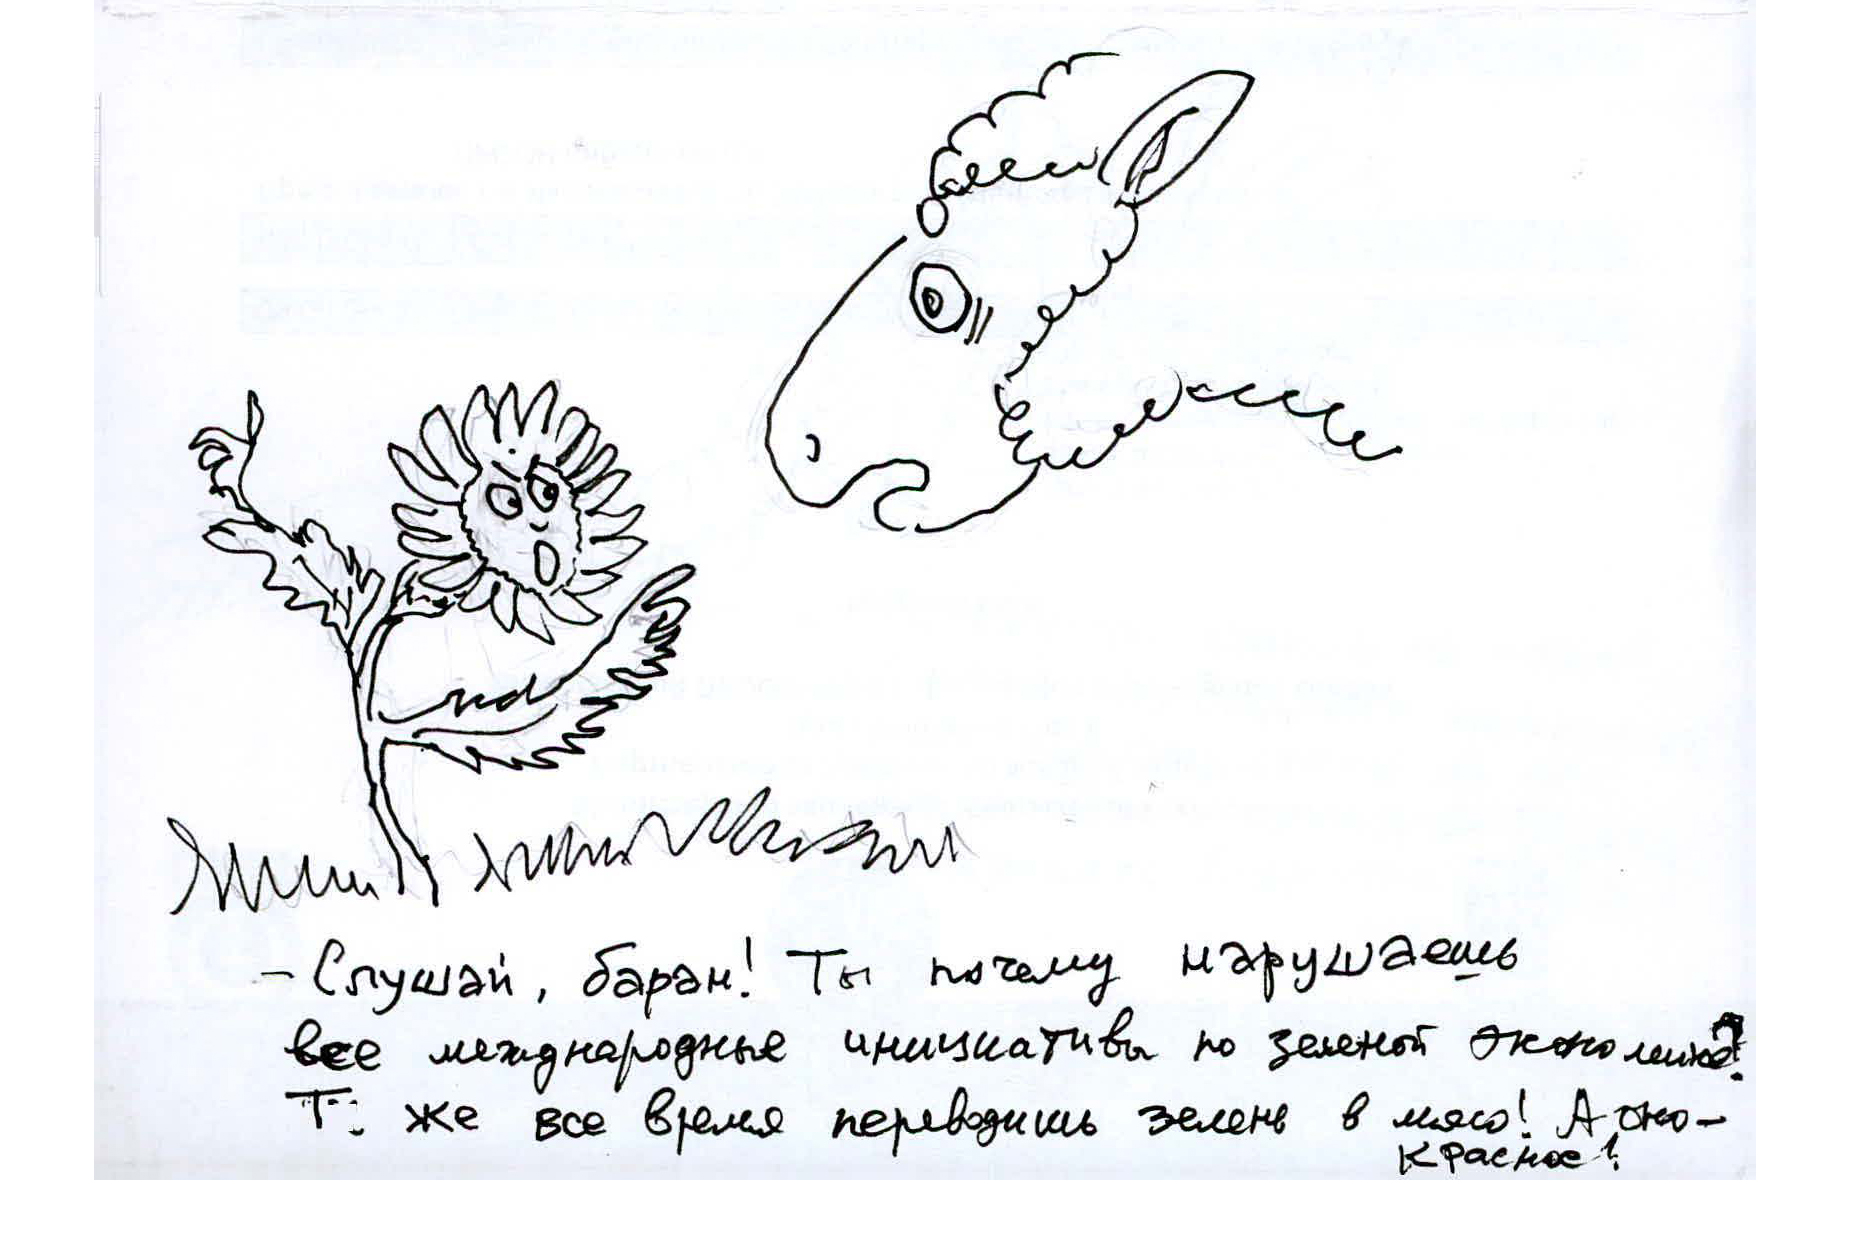 - Слушай, баран! Ты почему нарушаешь
все международные инициативы по зеленой экономике?
Ты же все время переводишь зелень в мясо! А оно -
красное!